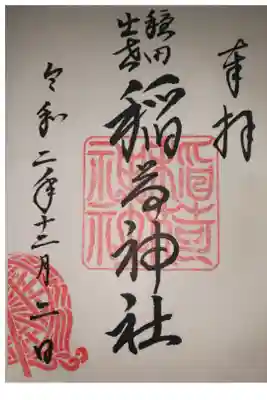 奉拝
出世
稲荷神社
令和二年十二月二日